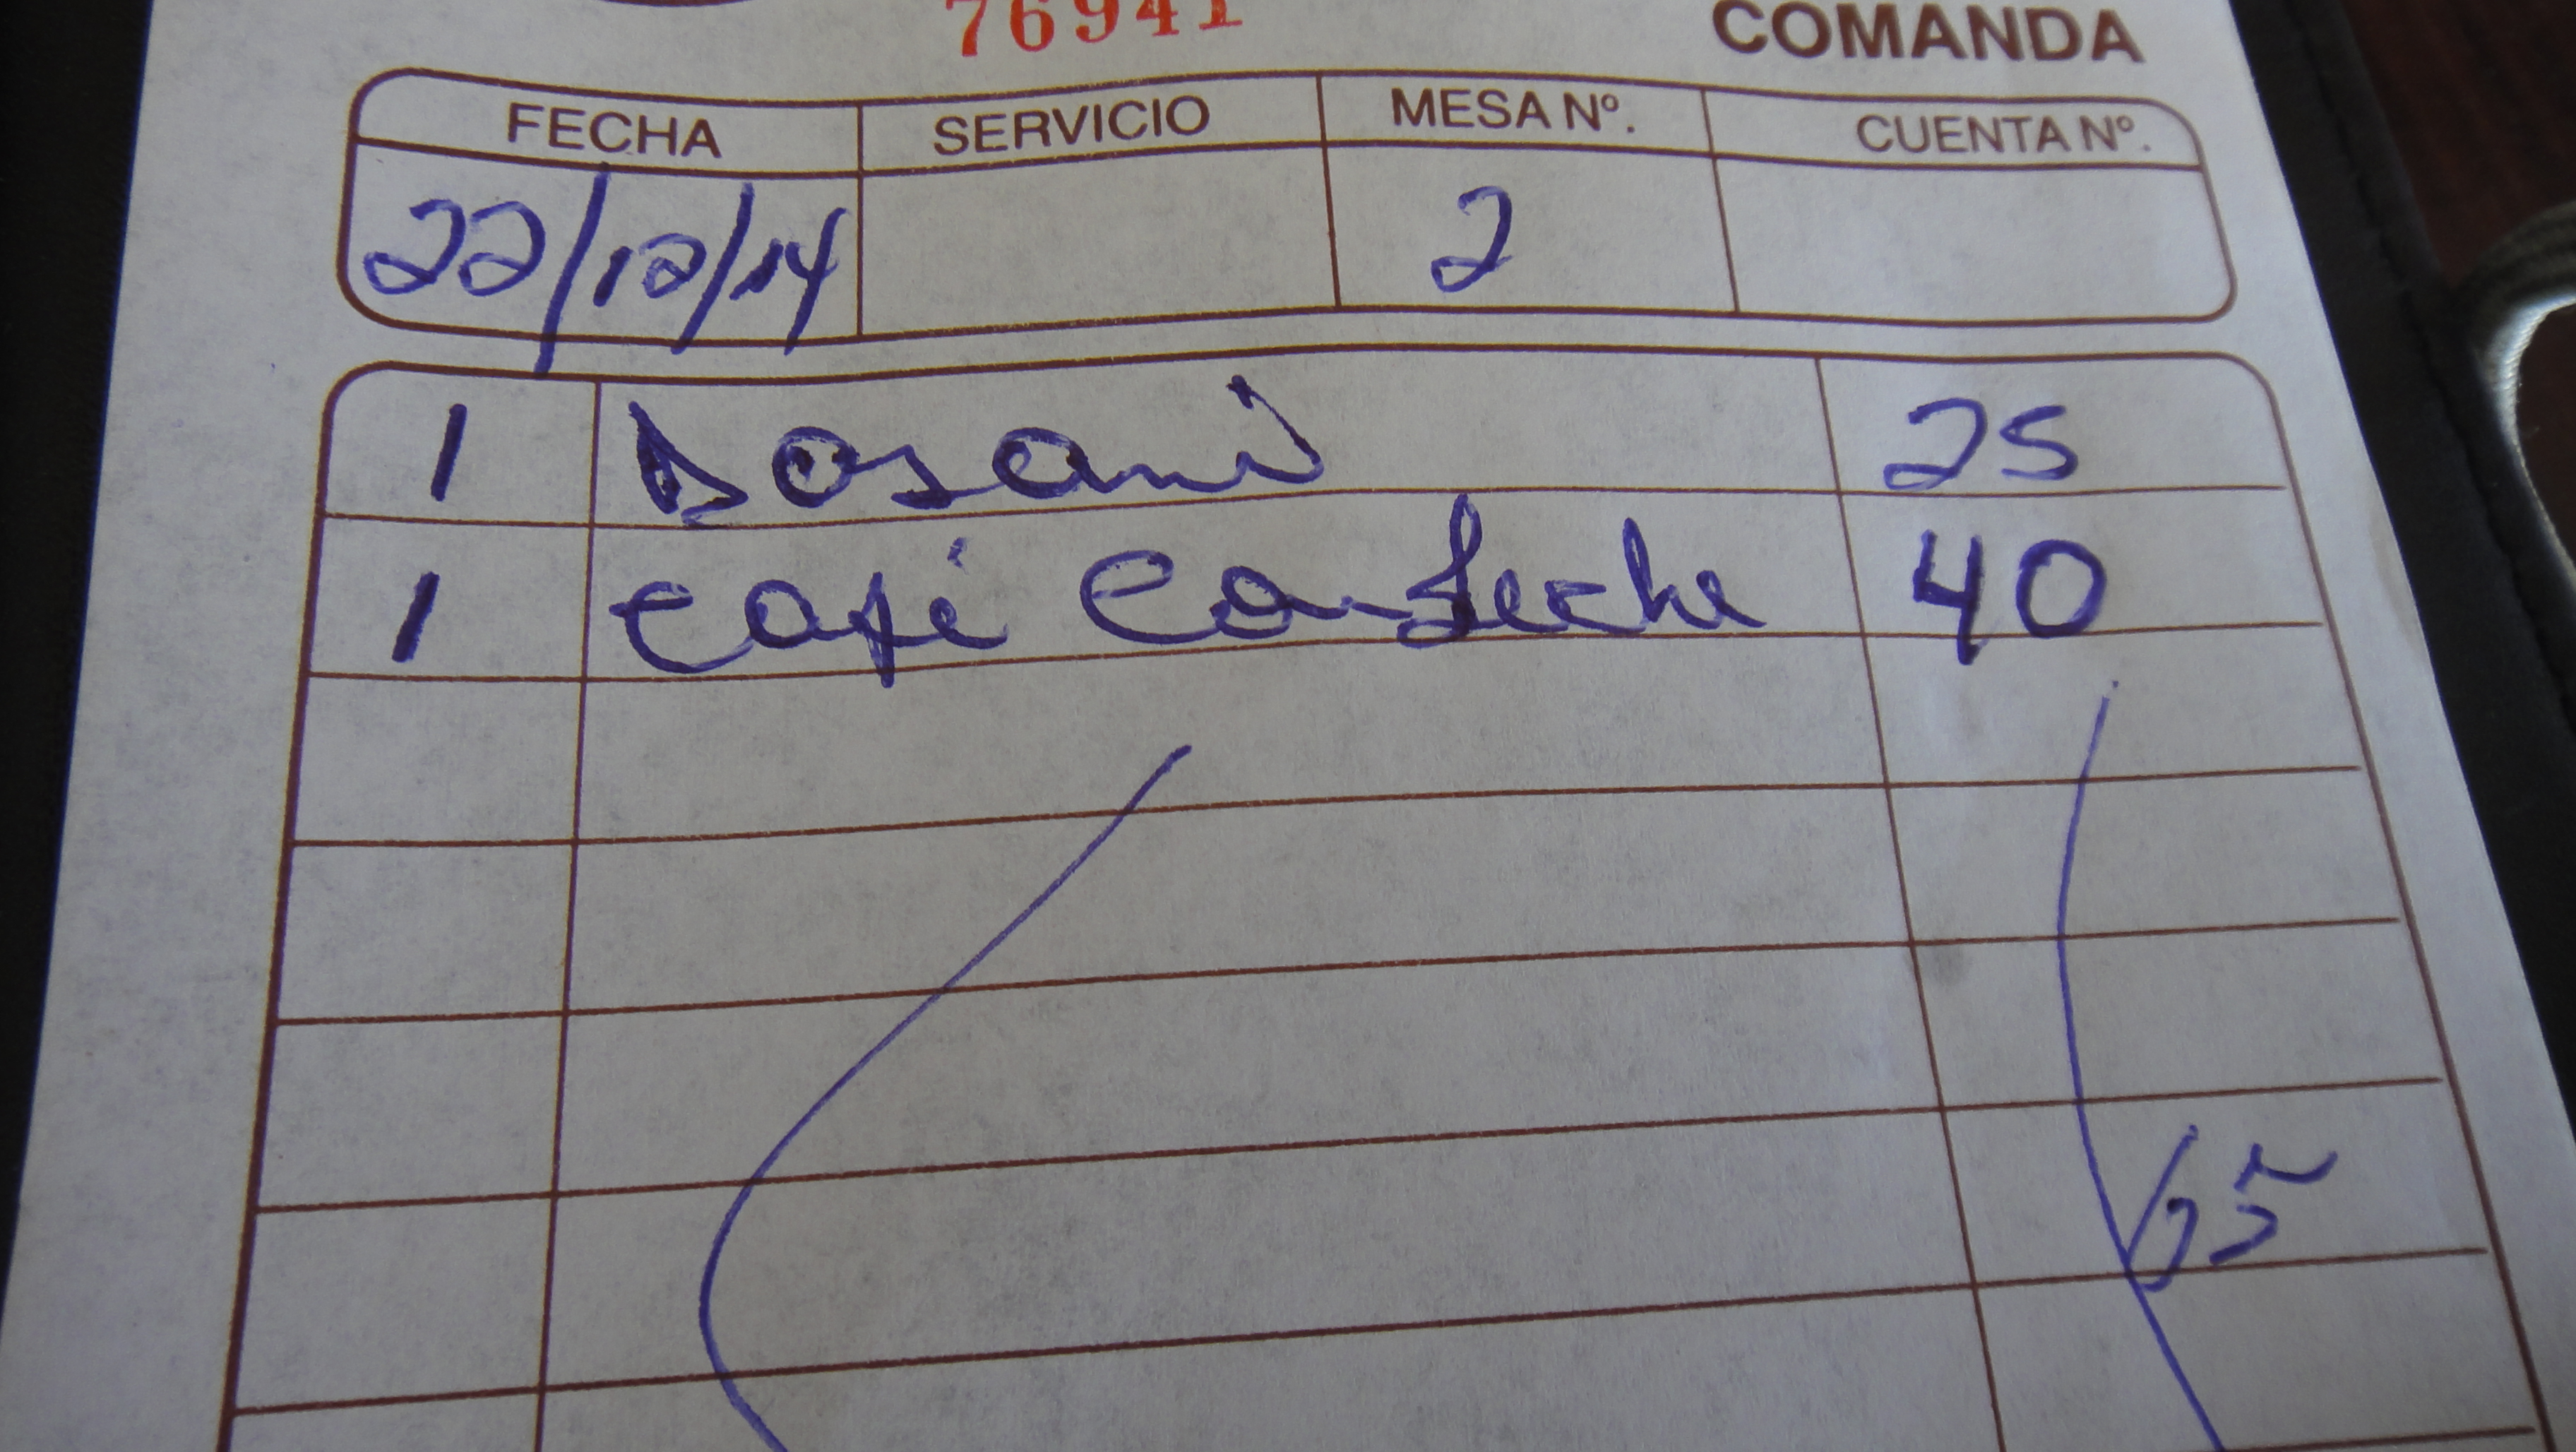 76941 COMANDA
FECHA SERVICIO MESA Nº. CUENTA Nº.
22/12/14 2
1 Dasani 25
1 Café Con Leche 40
65